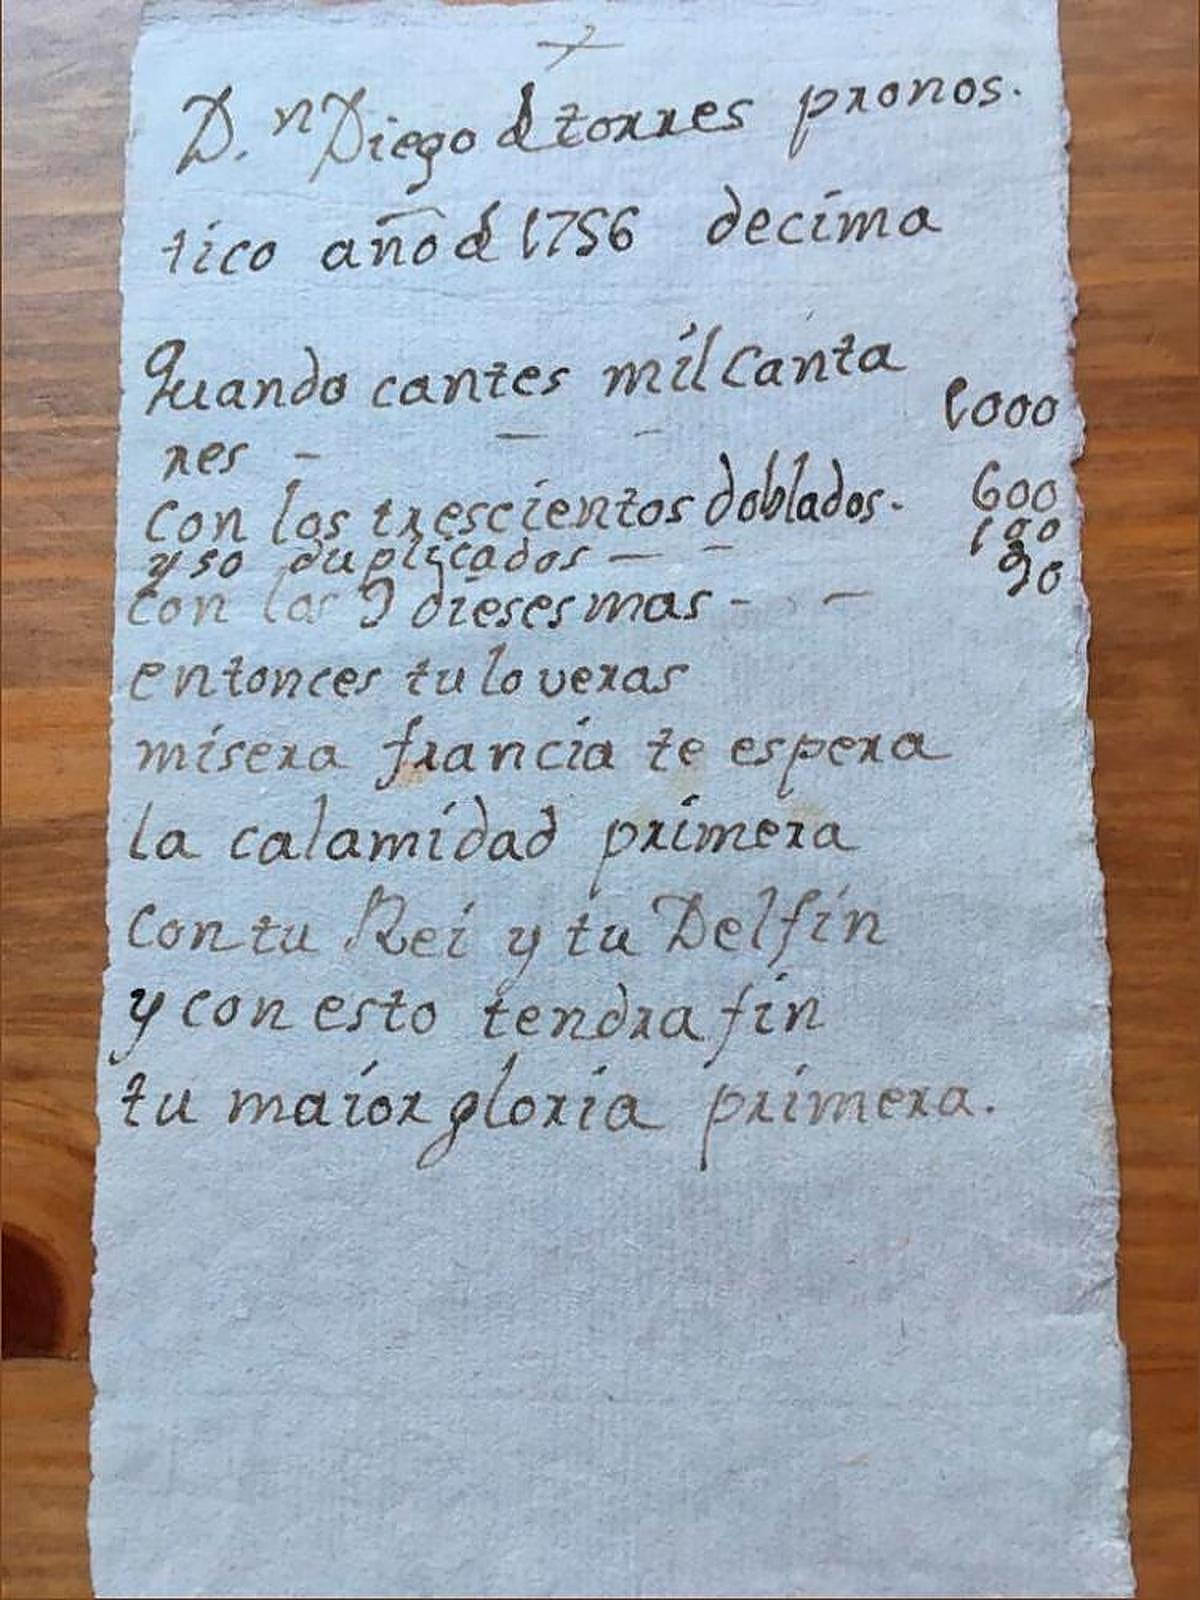 D.n Diego d torres pronos.
tico año d 1756 decima
Quando cantes mil canta
res - - - 1000
con los trescientos doblados. 600
y 50 duplicados - - 100
con los 9 dieses mas - - 90
entonces tu lo veras
misera francia te espera
la calamidad primera
con tu Rei y tu Delfin
y con esto tendra fin
tu maior gloria primera.